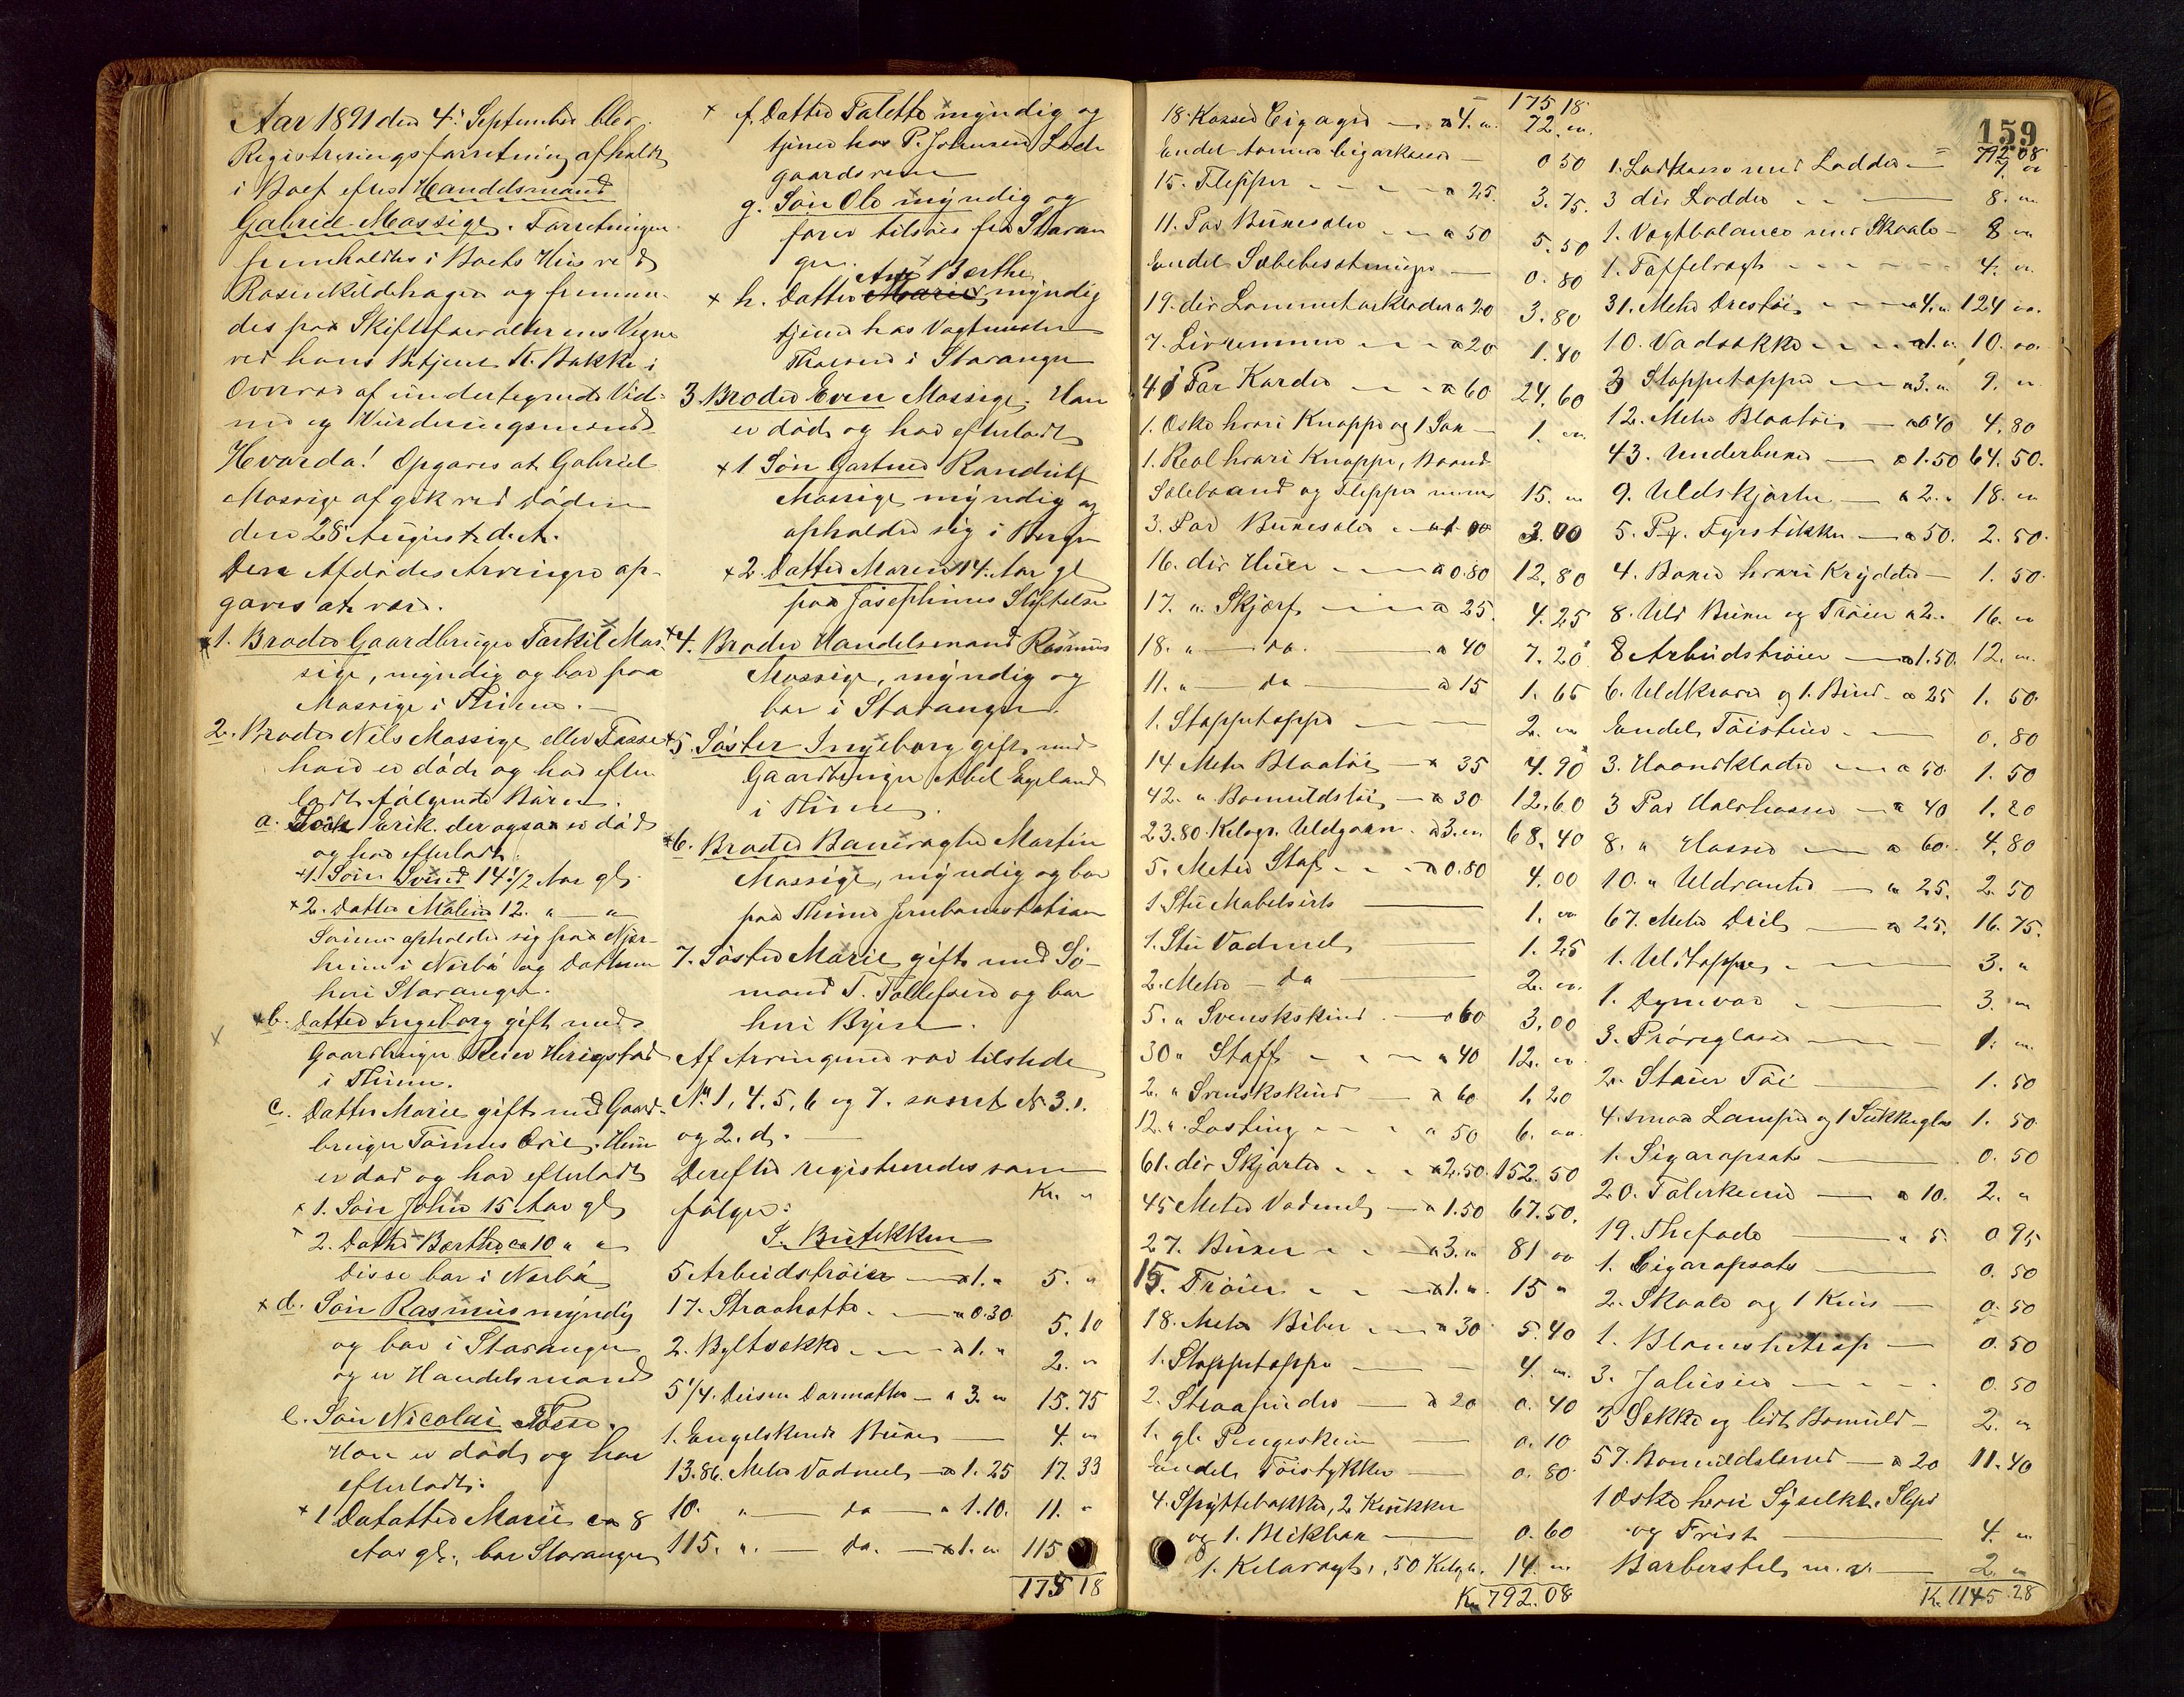 Aar 1891 den 4' September blev
Registreringsforretning afholdt
i Boet efter Handelsmand
Gabriel Mossige. Forretningen
fremholdtes i Boets Hus ved
Rosenkildehagen og fremmedes
paa Skifteforvalterens Vegne
ved hans Betjent St. Bakke i
Overvær af undertegnede Vidner
og Vurderingsmænd.
Hvorda! Opgaves at Gabriel
Mossige afgik ved Døden
den 28' August d. A.
Den Afdødes Arvinger opgaves
at være.
1. Broder Gaardbruger Torkil Mossige,
myndig og bor paa
Mossige i Thime.
2. Broder Nils Mossige eller Fosse
han er død og har efterladt
følgende Børn.
a. Søn Erik. der ogsaa er død
og har efterladt
1. Søn Svend 14 1/2 Aar gl.
2. Datter Malina 12. " — "
Sønnen opholder sig paa Njærheim
i Nærbø og Datteren
her i Stavanger.
b. Datter Ingeborg gift med
Gaardbruger Reier Herigstad
i Thime.
c. Datter Marie gift med Gaardbruger
Tønnes Orre. Hun
er død og har efterladt
1. Søn John 15 Aar gl.
2. Datter Berthe ca 10 " "
Disse bor i Nærbø
d. Søn Rasmus myndig
og bor i Stavanger
og er Handelsmand
e. Søn Nicolai Fosse.
Han er død og har
efterladt:
1 Datter Marie ca 8
Aar gl., bor Stavanger
f. Datter Talette myndig og
tjener hos P. Johnsen Ladegaardsveien
g. Søn Ole myndig og
farer tilsøes fra Stavanger
Ane Berthe
h. Datter Marie, myndig
tjener hos Vagtmester
Thorsen i Stavanger
3. Broder Even Mossige. Han
er død og har efterladt
1 Søn Gartner Randulf
Mossige myndig og
opholder sig i Bergen
2. Datter Maren 14. Aar gl
paa Josephines Stiftelse
4. Broder Handelsmand Rasmus
Mossige, myndig og
bor i Stavanger.
5. Søster Ingeborg gift med
Gaardbruger Abel Egeland
i Thime
6. Broder Banevogter Martin
Mossige, myndig og bor
paa Thime Jernbanestation
7. Søster Marie gift med Sømand
T. Tollefsen og bor
her i Byen.
Af Arvingerne var tilstede
No 1, 4, 5, 6 og 7. samt No 3.1.
og 2. d.
Derefter registreredes som
følger: Kr. "
I. Butikken
5 Arbeidstrøier — a 1. " 5. "
17. Straahatte — a 0.30 5.10
2. Byltsække — a 1. " 2. "
5 1/4. Deisen Dørmatter — a 3. " 15.75
1. Engelskinds Buxe — 4. "
13.86. Meter Vadmel — a 1.25 17.33
10. " — do — a 1.10. 11. "
115. " — do. — a 1. " 115
175 18
175 18
18. Kasser Cigarer — a 4. " 72. "
Endel tomme Cigarkasser — 0 50
15. Flipper — a 25. 3.75.
11. Par Buxeseler — a 50 5.50
Endel Sæbebesætninger — 0.80
19. dir Lommetørklæder a 20 3.80
7. Livremmer — a 20 1.40
41 Par Karder — a 60 24.60
1. Æske hvori Knappe og 1 Sax — 1. "
1. Reol hvori Knappe, Baand
Seleband og Flipper m.m. 15. "
3. Par Buxeseler — a 1 00 3.00
16. dir Huer — a 0.80 12.80
17. " Skjærf — a 25. 4.25
18. " — do. — a 40 7.20
11. " — do — a 15 1.65
1. Stoppetæppe — 2. "
14 Meter Blaatøi — a 35 4.90
42. " Bomuldstøi — a 30 12.60
23.80. Kilogr. Uldgarn a 3. " 68.40
5. Meter Stof — a 0.80 4.00
1. Stu Møbelsirts — 1. "
1. Stu Vadmel — 1.25
2. Meter — do — 2. "
5. " Svenskskind — a 60 3.00
30 " Stoff — a 40 12. "
2. " Svenskskind — a 60 1.20
12. " Lasting — a 50 6. "
61. dir Skjorter — a 2.50. 152.50
45 Meter Vadmel — a 1.50 67.50.
27. Buxer — a 3. " 81 "
15. Trøier — a 1. " 15 "
18. Meter Biber — a 30 5.40
1. Stoppetæppe — 4. "
2. Straapuder — a 20 0.40
1. gl. Pengeskrin — 0.10
Endel Tøistykker — 0.80
4. Spyttebakker, 2 Krukker
og 1. Blikkan — 0.60
1. Kilovægt, 50 Kilogr. 14. "
Kr. 792.08
159
792.08
1. Ladkasse med Lodder — 7. "
3 dir Lodder — 8. "
1. Vægtbalance med Skaale — 8 "
1. Taffelvægt — 4. "
31. Meter Drestøi — a 4. " 124 "
10. Vadsække — a 1. " 10. "
3 Stoppetæpper — a 3. " 9. "
12. Meter Blaatøi — a 0 40 4.80
43. Underbuxer — a 1.50 64.50.
9. Uldskjorter — a 2. " 18. "
5. Px. Fyrstikker — a 50. 2.50.
4. Boxer hvori Krydder — 1.50.
8. Uld Buxer og Trøier a 2. " 16. "
8 Arbeidstrøier — a 1.50. 12. "
6. Uldkraver og 1. Bind — a 25 1.50.
Endel Tøistuer — 0.80
3. Haandklæder — a 50. 1.50
3 Par Halvhoser — a 40 1.20
8. " Hoser — a 60. 4.80
10. " Uldvanter — a 25. 2.50
67. Meter Dreil — a 25. 16.75.
1. Uldtæppe — 3. "
1. Dynevar — 3. "
3. Prøveglasse — 1. "
2. Stuer Tøi — 1.50
4. smaa Lamper og 1 Sukkerglas 1.50
1. Sigaropsats — 0.50
20. Talerkener — a 10. 2. "
19. Thefade — a 5 0 95
1. Cigaropsats — 0.50
2. Skaale og 1 Krus — 0.50
1. Blomstertrap — 0.50
3. Jalusier — 0.50
3 Sække og lidt Bomuld — 2. "
57. Bomuldslærred — a 20 11.40
1 Æske heri Sysilke. Slips
og Frist — 4. "
Barberstel m. v. — 2. "
K. 1145.28